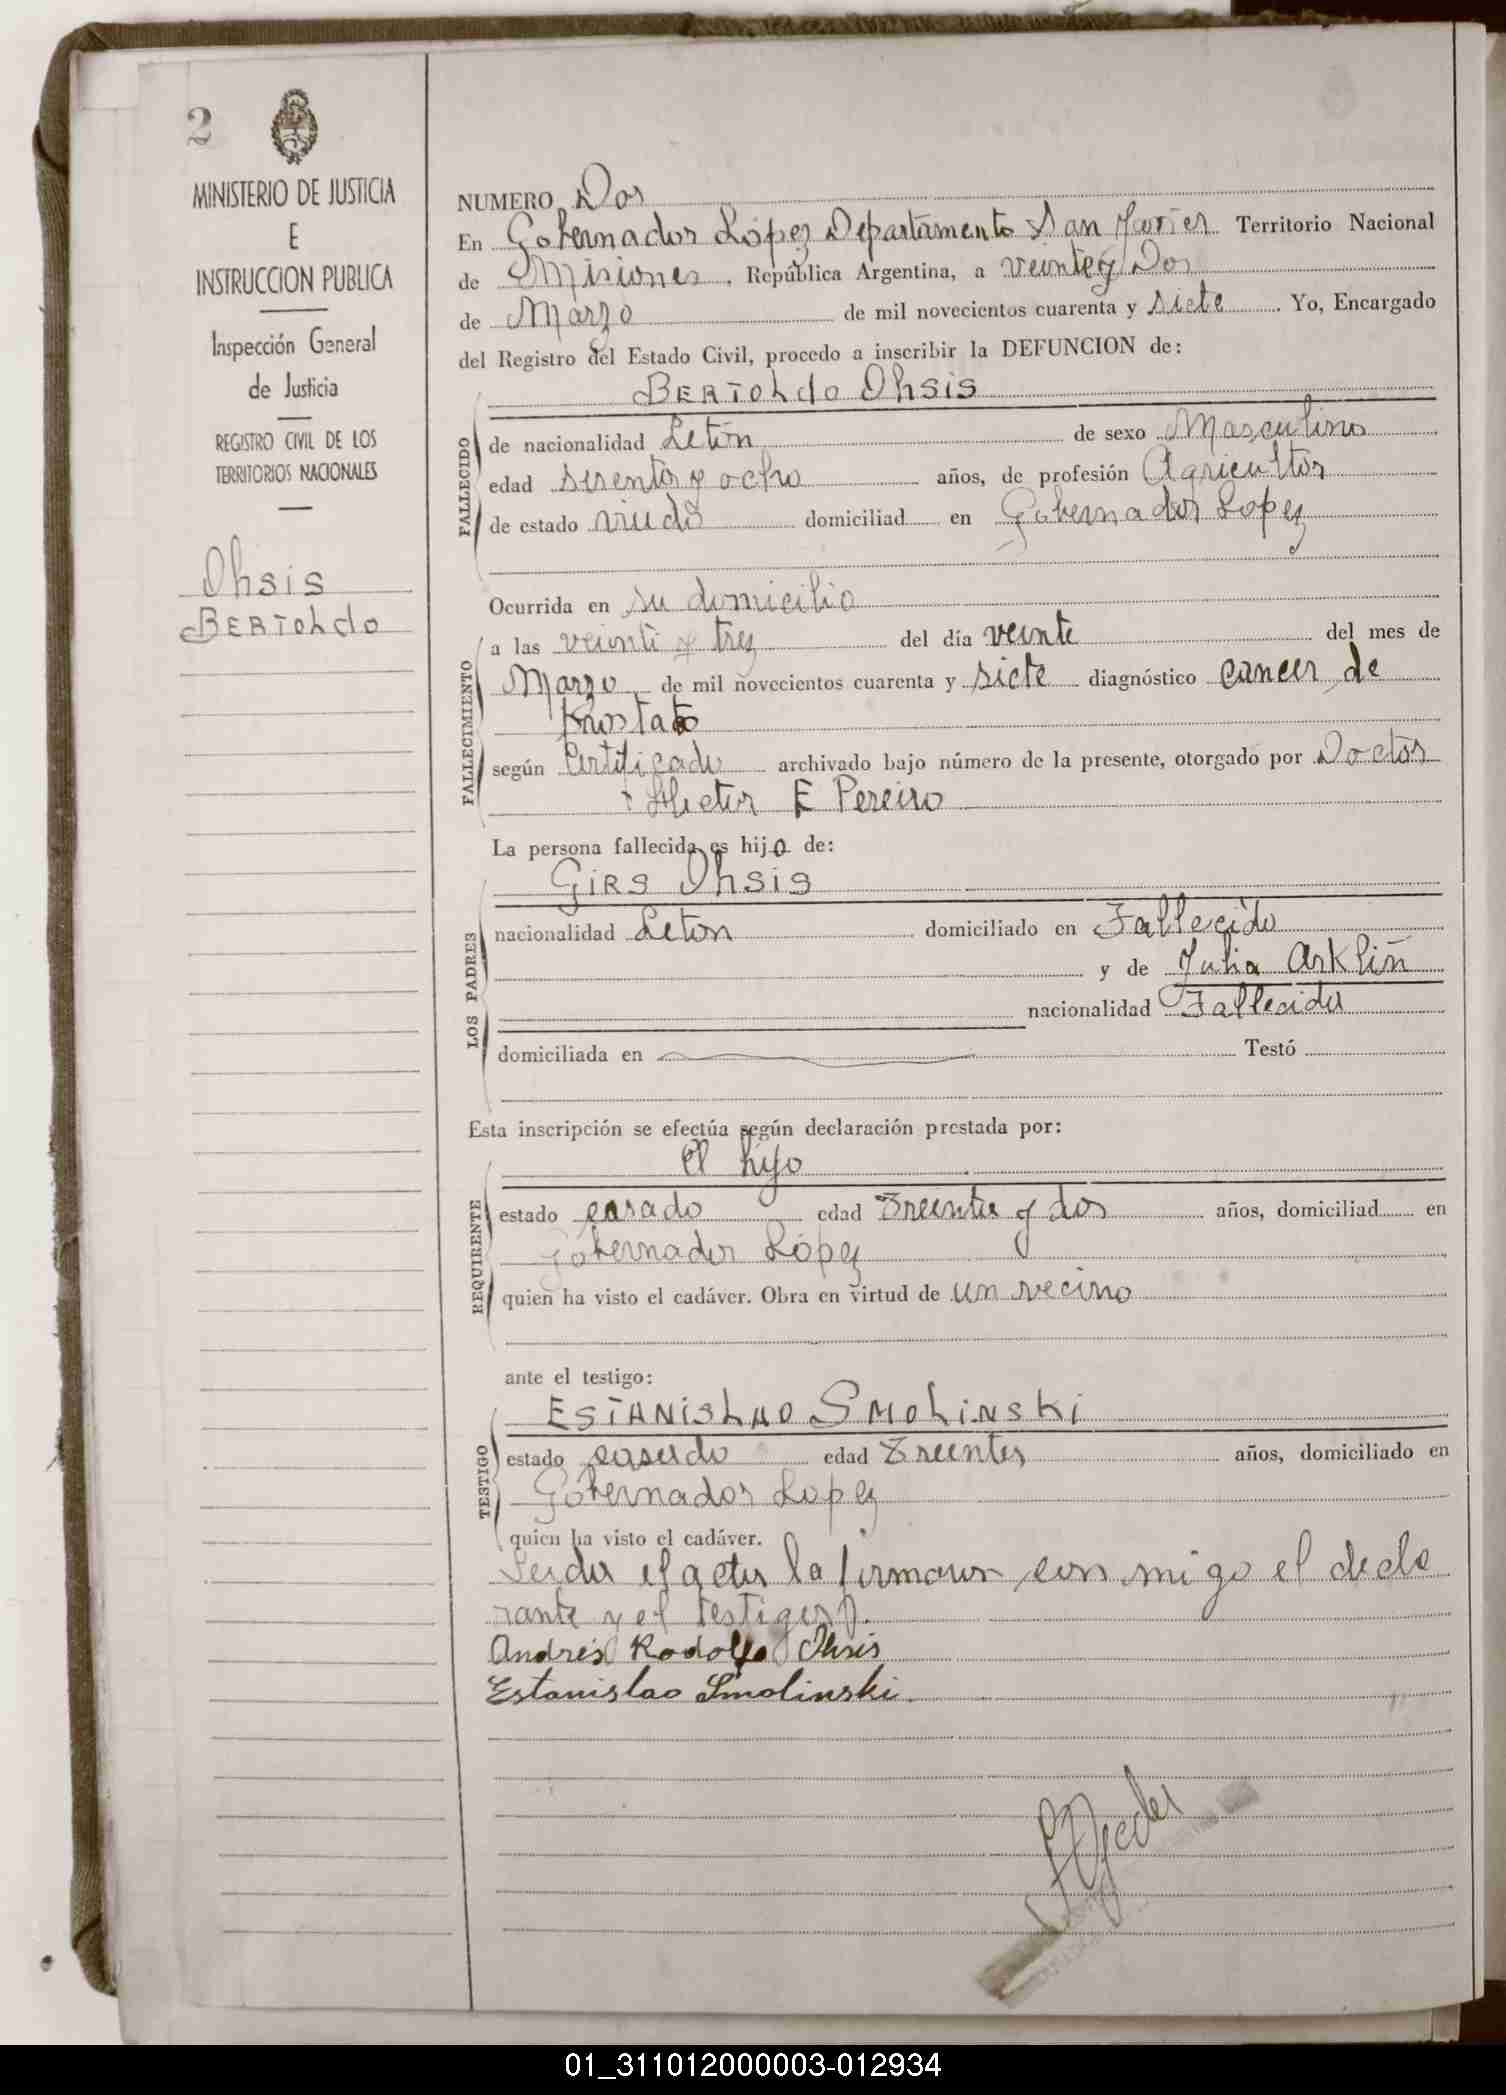 2
MINISTERIO DE JUSTICIA
E
INSTRUCCION PUBLICA
Inspección General
de Justicia
REGISTRO CIVIL DE LOS
TERRITORIOS NACIONALES
Ohsis
BERTOLdo
NUMERO Dos
En Gobernador López Departamento San Javier Territorio Nacional
de Misiones, República Argentina, a veinte y Dos
de Marzo de mil novecientos cuarenta y siete. Yo, Encargado
del Registro del Estado Civil, procedo a inscribir la DEFUNCION de:
BERTOLdo Ohsis
FALLECIDO
de nacionalidad Letón de sexo Masculino
edad sesenta y ocho años, de profesión Agricultor
de estado viudo domiciliad en Gobernador Lopez
Ocurrida en su domicilio
FALLECIMIENTO
a las veinti y trez del día veinte del mes de
Marzo de mil novecientos cuarenta y siete diagnóstico cancer de
Prostata
según Certificado archivado bajo número de la presente, otorgado por Doctor
Hector E Pereiro
La persona fallecida es hijo de:
LOS PADRES
GiRS Ohsis
nacionalidad Leton domiciliado en Fallecido
y de Julia Arkliñ
nacionalidad Fallecida
domiciliada en Testó
Esta inscripción se efectúa según declaración prestada por:
REQUIRENTE
el hijo
estado casado edad Treinta y dos años, domiciliad en
Gobernador López
quien ha visto el cadáver. Obra en virtud de un vecino
ante el testigo:
TESTIGO
ESTANISLAO SMOLiNSKi
estado casado edad Treinta años, domiciliado en
Gobernador Lopez
quien ha visto el cadáver.
Leida el acta la firmaron con migo el decla
rante y el testigo
Andrés Rodolfo Ohsis
Estanislao Smolinski.
01_311012000003-012934